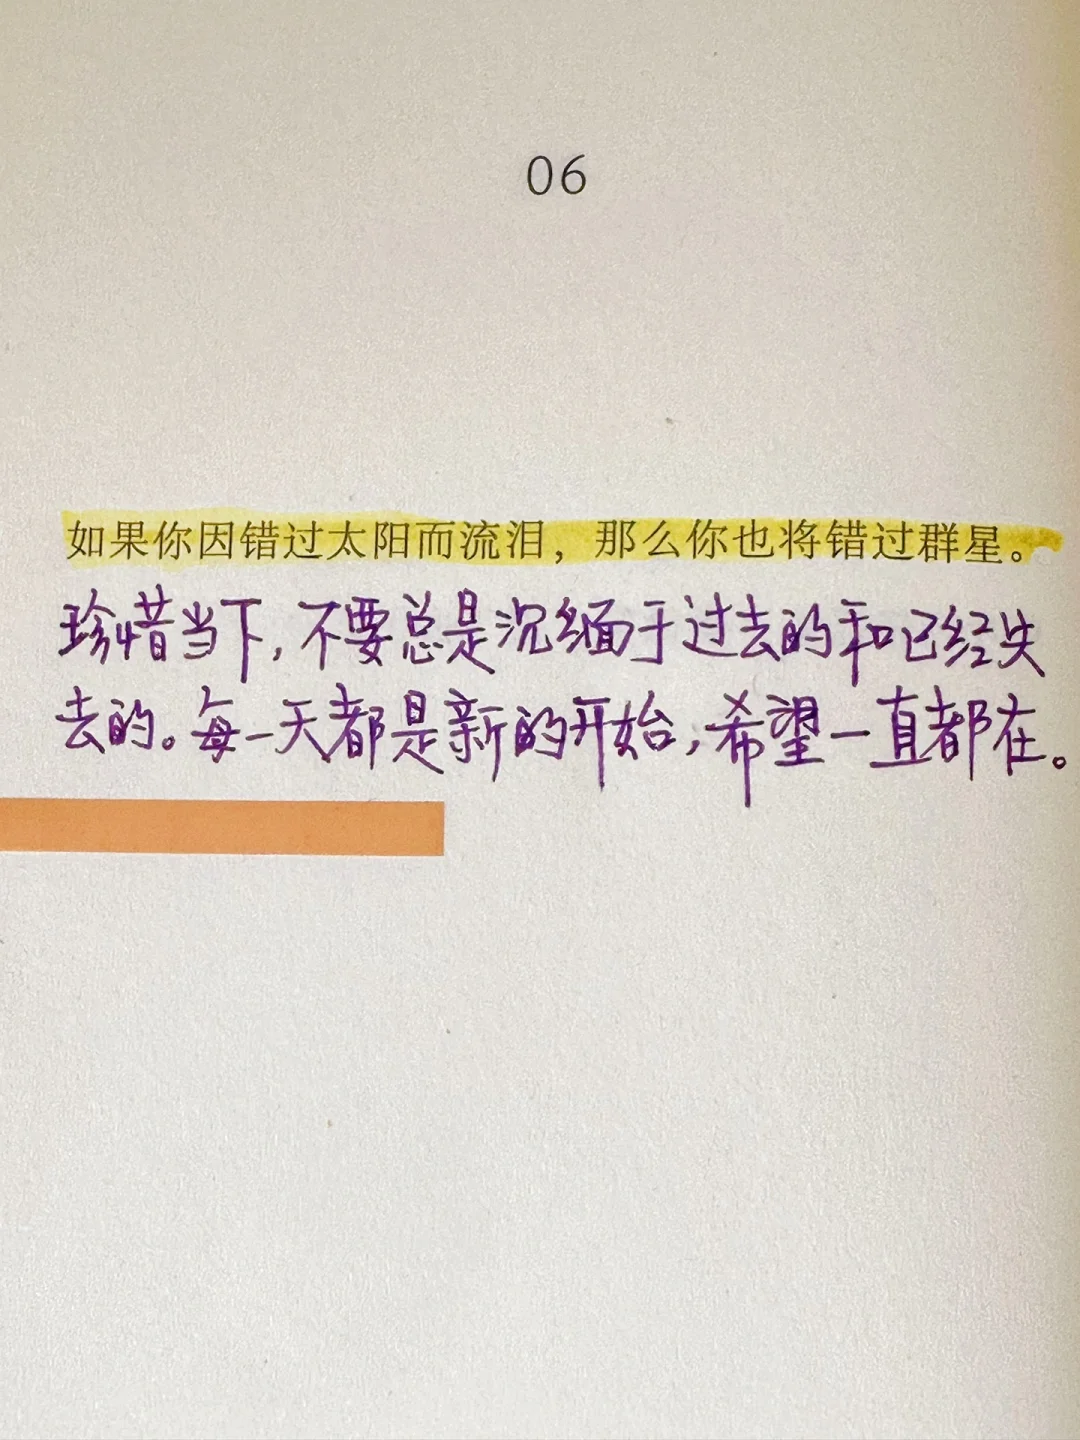 06
如果你因错过太阳而流泪，那么你也将错过群星。
珍惜当下，不要总是沉缅于过去的和已经失
去的。每一天都是新的开始，希望一直都在。